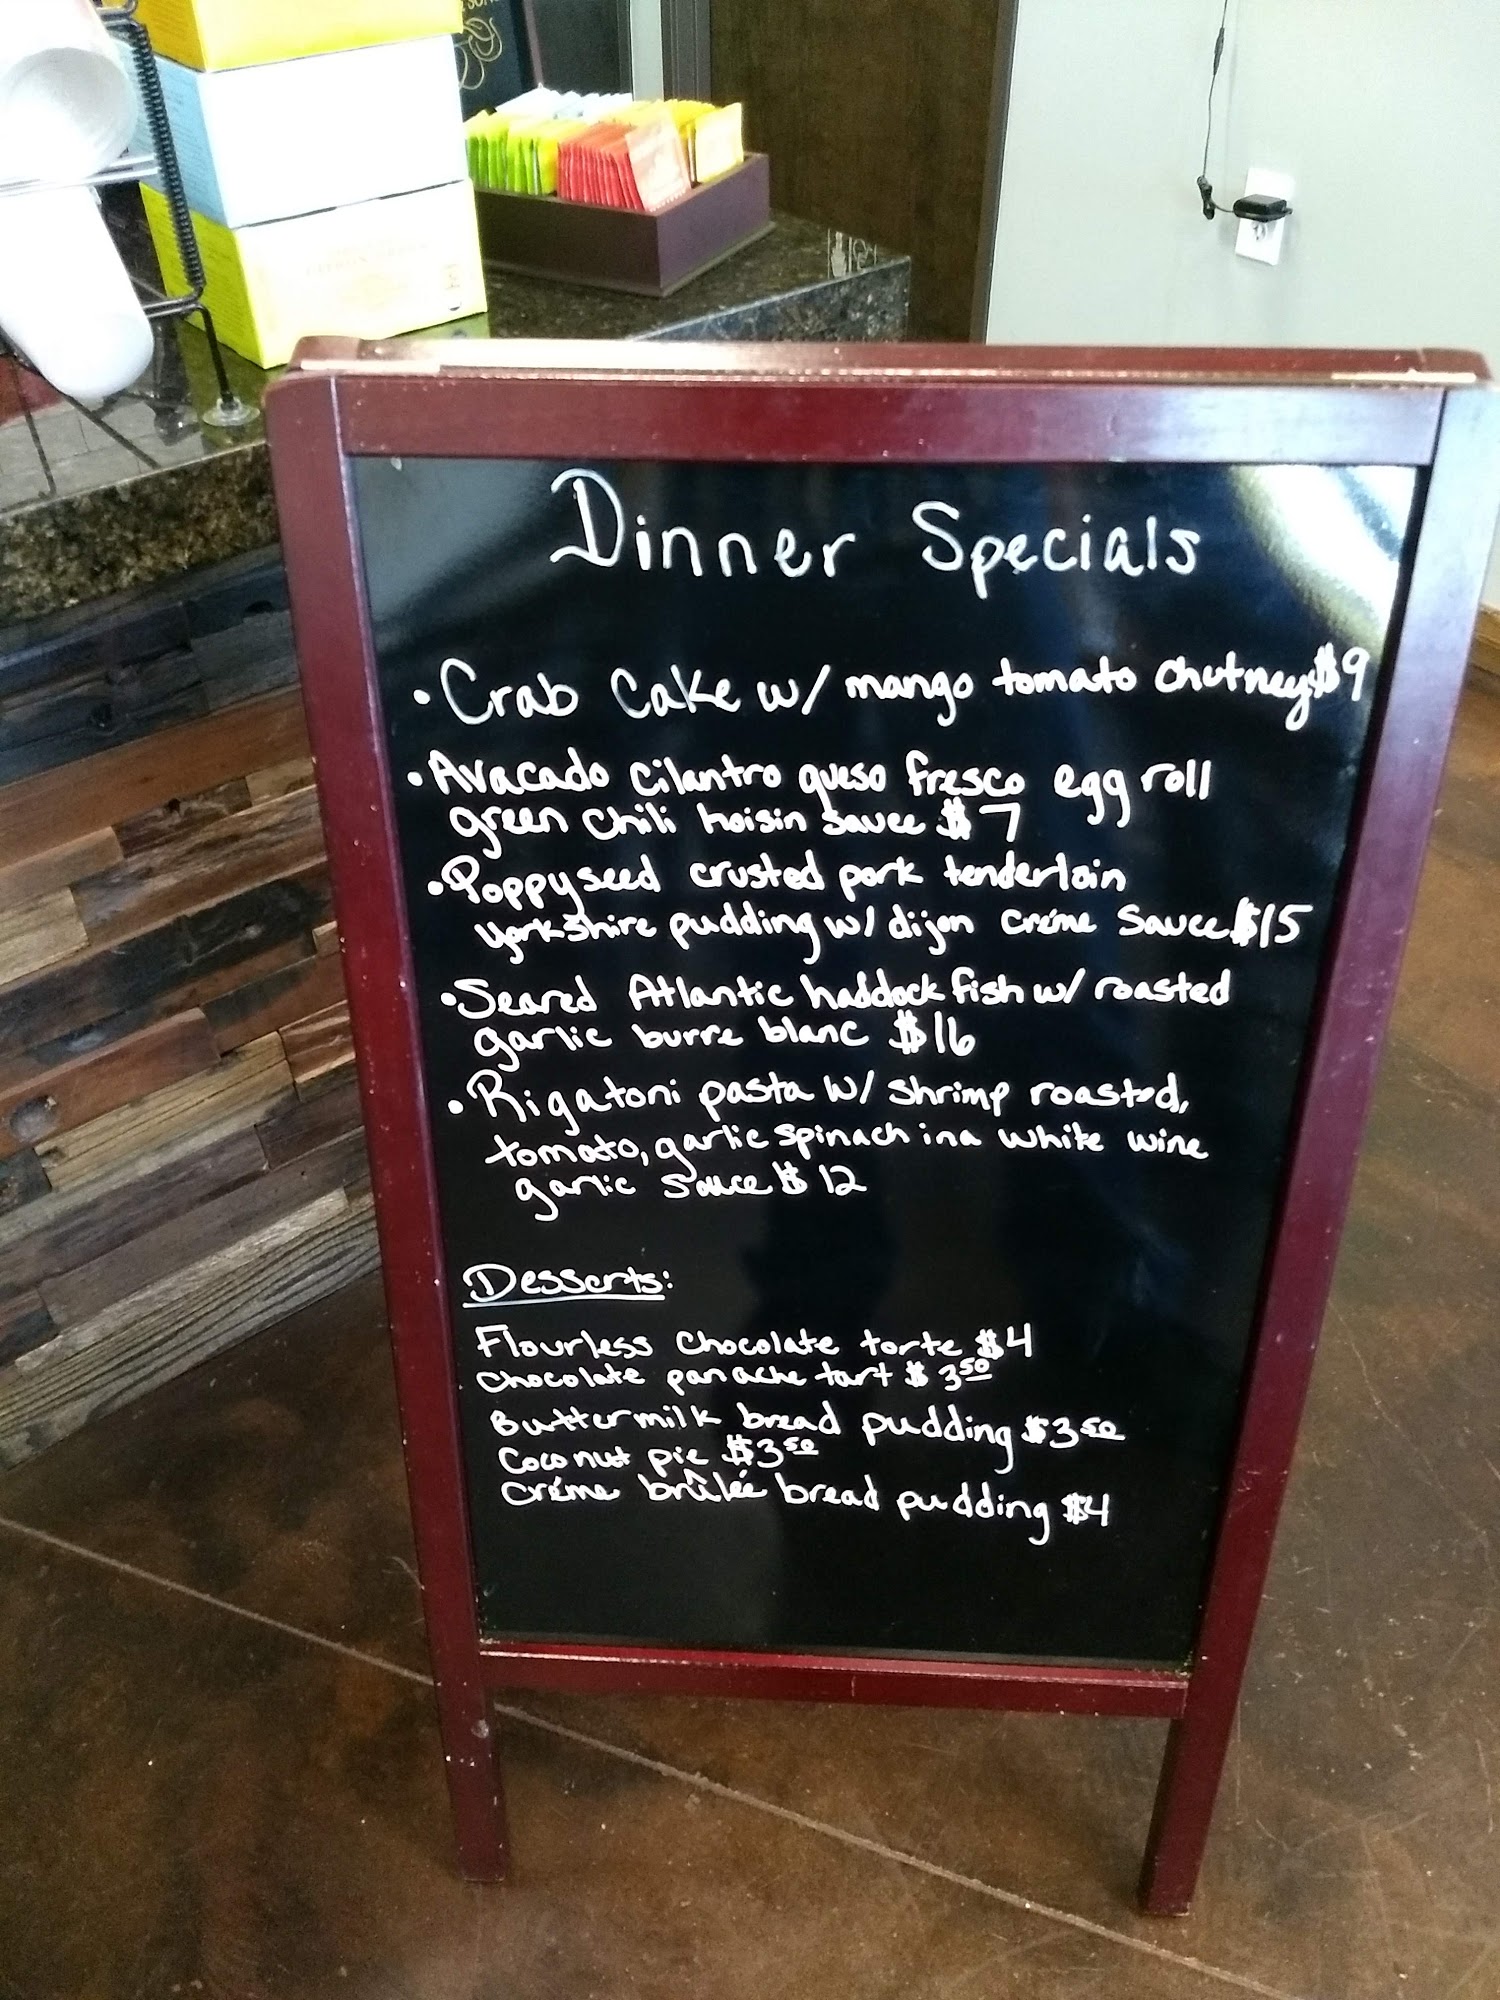 Dinner Specials
• Crab Cake w/ mango tomato chutney $9
• Avacado cilantro queso fresco egg roll
green chili hoisin sauce $7
• Poppyseed crusted pork tenderloin
yorkshire pudding w/ dijon créme sauce $15
• Seared Atlantic haddock fish w/ roasted
garlic burre blanc $16
• Rigatoni pasta w/ shrimp roasted,
tomato, garlic spinach in a white wine
garlic sauce $12
Desserts:
Flourless chocolate torte $4
chocolate panache tart $3.50
Buttermilk bread pudding $3.50
Coconut pie $3.50
créme brûlée bread pudding $4